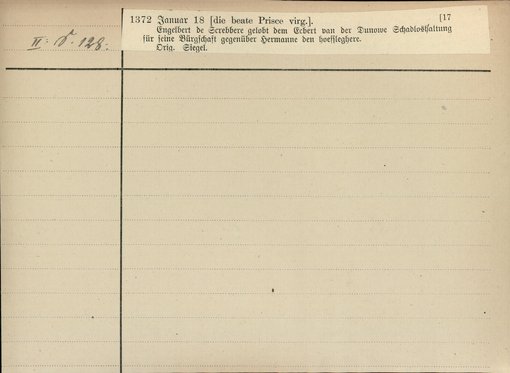 1372 Januar 18 [die beate Prisce virg.]. [17
Engelbert de Screbbere gelobt dem Ecbert van der Dunowe Schadloshaltung
für seine Bürgschaft gegenüber Hermanne den hoefsleghere.
Orig. Siegel.
II. 128.